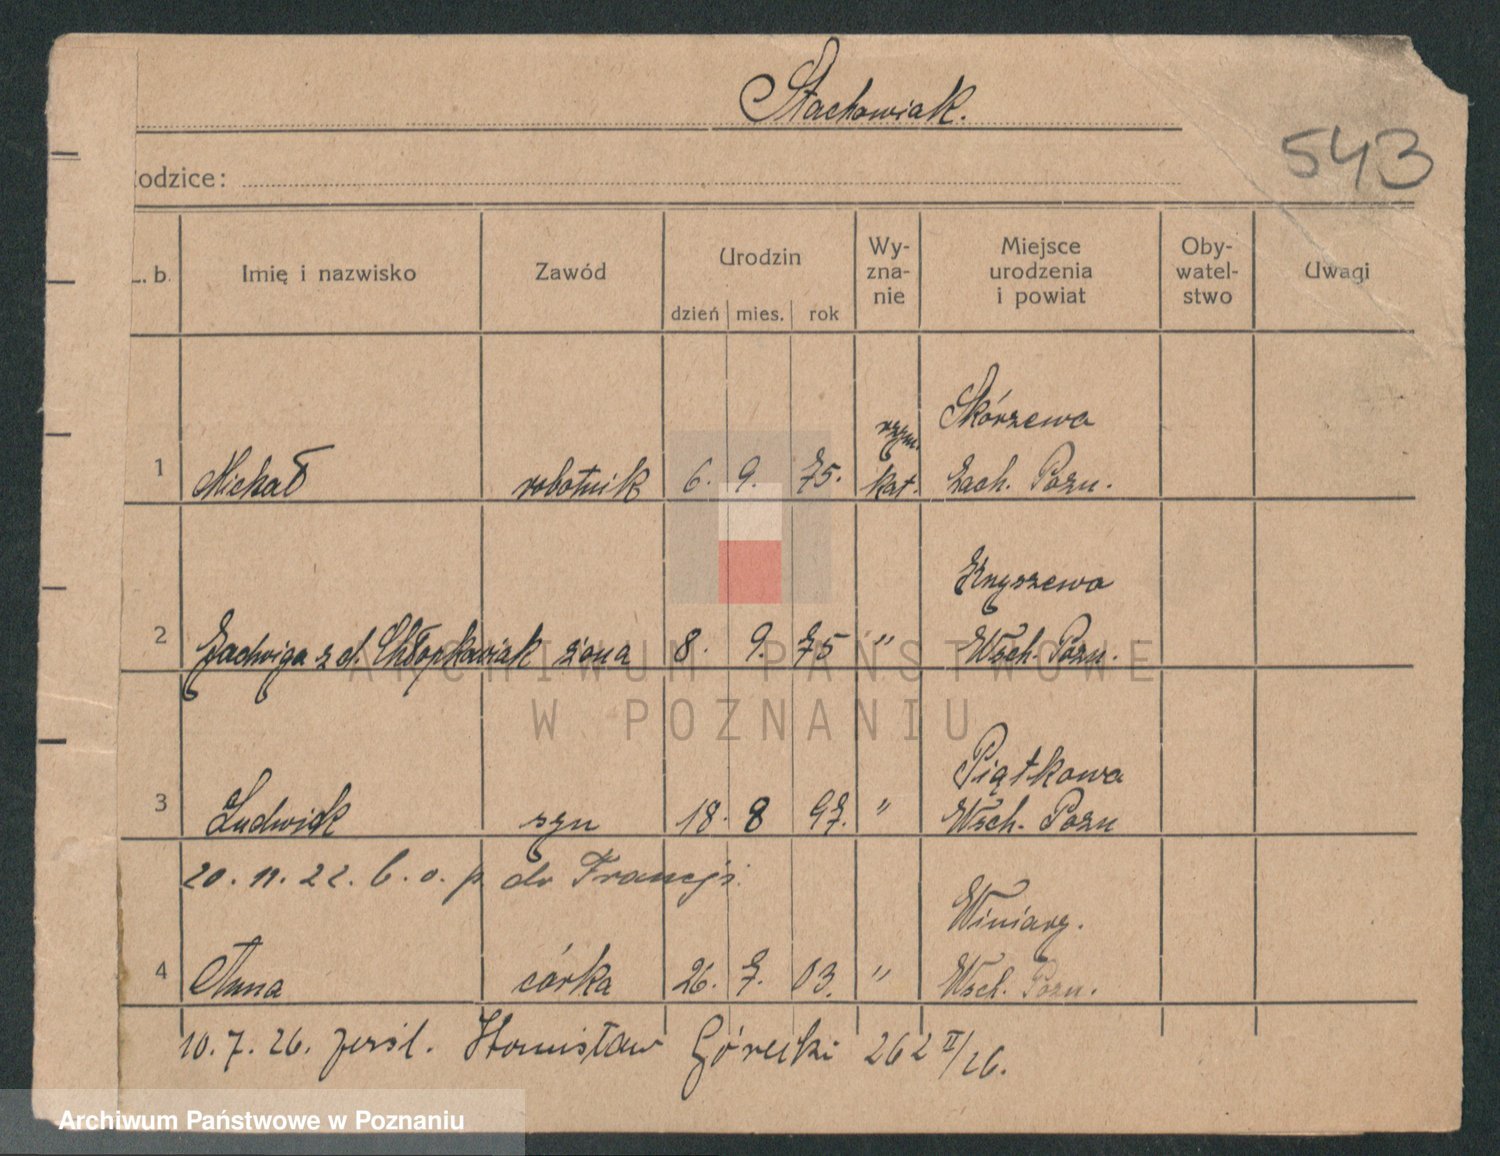 Stachowiak.
543
odzice:
L. b. Imię i nazwisko Zawód Urodzin Wy-zna-nie Miejsce urodzenia i powiat Oby-watel-stwo Uwagi
dzień mies. rok
Skórzewa
rzym.
1 Michał robotnik 6. 9. 75. kat. Zach. Pozn.
Kryszewa
2 Jadwiga z d. Chłopkowiak żona 8. 9. 75 " Wsch. Pozn.
Piątkowa
3 Ludwik syn 18. 8 97. " Wsch. Pozn
20. 11. 22. b. o. p do Francji.
Winiary.
4 Anna córka 26. 7. 03. " Wsch. Pozn.
10. 7. 26. Stanisław Górecki 262 II/26.
ARCHIWUM PAŃSTWOWE
W POZNANIU
Archiwum Państwowe w Poznaniu